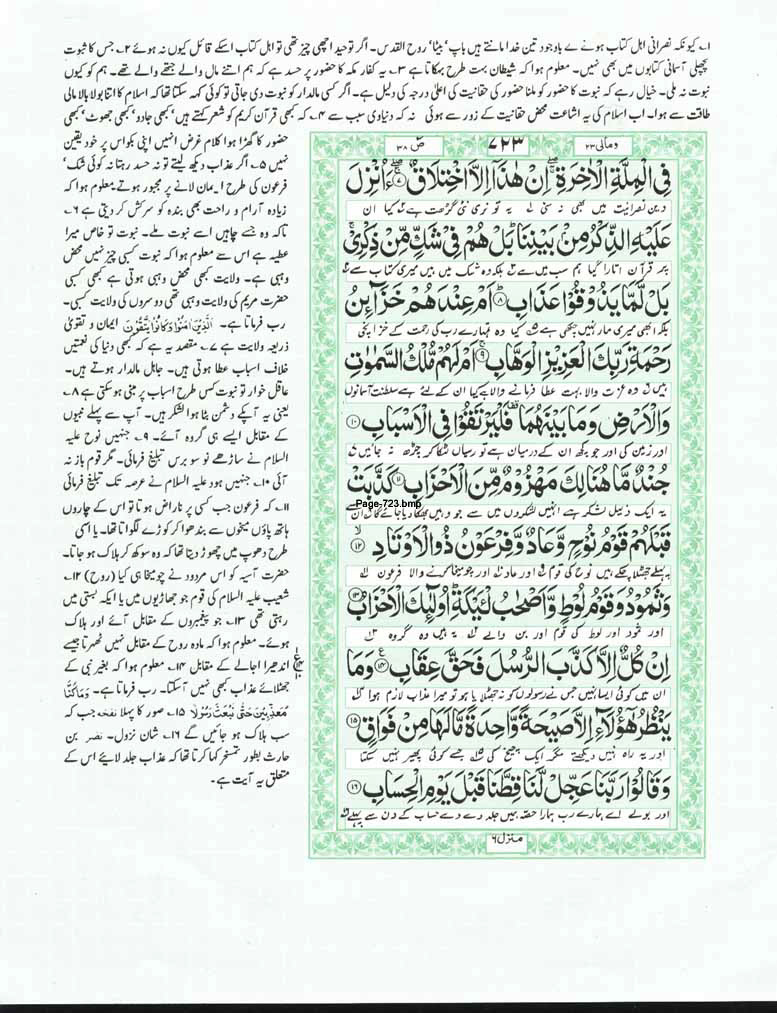 ۱۔ کیونکہ نصرانی اہل کتاب ہونے کے باوجود تین خدا مانتے ہیں باپ' بیٹا' روح القدس۔ اگر توحید اچھی چیز تھی تو اہل کتاب اسکے قائل کیوں نہ ہوئے ۲۔ جس کا ثبوت
پچھلی آسمانی کتابوں میں بھی نہیں۔ معلوم ہوا کہ شیطان بہت طرح بہکاتا ہے ۳۔ یہ کفار مکہ کا حضور پر حسد ہے کہ ہم اتنے مال والے جتھے والے تھے۔ ہم کو کیوں
نبوت نہ ملی۔ خیال رہے کہ نبوت کا حضور کو ملنا حضور کی حقانیت کی اعلیٰ درجہ کی دلیل ہے۔ اگر کسی مالدار کو نبوت دی جاتی تو کوئی کہہ سکتا تھا کہ اسلام کا اتنا بولا بالا مالی
طاقت سے ہوا۔ اب اسلام کی یہ اشاعت محض حقانیت کے زور سے ہوئی نہ کہ دنیاوی سبب سے ۴۔ کہ کبھی قرآن کریم کو شعر کہتے ہیں' کبھی جادو' کبھی جھوٹ' کبھی
حضور کا گھڑا ہوا کلام غرض انہیں اپنی بکواس پر خود یقین
نہیں ۵۔ اگر عذاب دیکھ لیتے تو نہ حسد رہتا نہ کوئی شک'
فرعون کی طرح ایمان لانے پر مجبور ہوتے معلوم ہوا کہ
زیادہ آرام و راحت بھی بندہ کو سرکش کر دیتی ہے ۶۔
تاکہ وہ جسے چاہیں اسے نبوت ملے۔ نبوت تو خاص میرا
عطیہ ہے اس سے معلوم ہوا کہ نبوت کسبی چیز نہیں محض
وہبی ہے۔ ولایت کبھی محض وہبی ہوتی ہے کبھی کسبی
حضرت مریم کی ولایت وہبی تھی دوسروں کی ولایت کسبی۔
رب فرماتا ہے۔ الَّذِیْنَ اٰمَنُوْا وَکَانُوْا یَتَّقُوْنَ ایمان و تقویٰ
ذریعہ ولایت ہے ۷۔ مقصد یہ ہے کہ کبھی دنیا کی نعمتیں
خلاف اسباب عطا ہوتی ہیں۔ جاہل مالدار ہوتے ہیں۔
عاقل خوار تو نبوت کس طرح اسباب پر مبنی ہو سکتی ہے ۸۔
یعنی یہ آپکے دشمن پٹا ہوا لشکر ہیں۔ آپ سے پہلے نبیوں
کے مقابل ایسے ہی گروہ آئے۔ ۹۔ جنہیں نوح علیہ
السلام نے ساڑھے نو سو برس تبلیغ فرمائی۔ مگر قوم باز نہ
آئی ۱۰۔ جنہیں ہود علیہ السلام نے عرصہ تک تبلیغ فرمائی
۱۱۔ کہ فرعون جب کسی پر ناراض ہوتا تو اس کے چاروں
ہاتھ پاؤں میخوں سے بندھوا کر کوڑے لگواتا تھا۔ یا اسی
طرح دھوپ میں چھوڑ دیتا تھا کہ وہ سوکھ کر ہلاک ہو جاتا۔
حضرت آسیہ کو اس مردود نے چومیخا ہی کیا (روح) ۱۲۔
شعیب علیہ السلام کی قوم جو جھاڑیوں میں یا ایکہ بستی میں
رہتی تھی ۱۳۔ جو پیغمبروں کے مقابل آئے اور ہلاک
ہوئے۔ معلوم ہوا کہ مادہ روح کے مقابل نہیں ٹھہرتا جیسے
اندھیرا اجالے کے مقابل ۱۴۔ معلوم ہوا کہ بغیر نبی کے
جھٹلائے عذاب کبھی نہیں آسکتا۔ رب فرماتا ہے۔ وَمَاکُنَّا
مُعَذِّبِیْنَ حَتّٰی نَبْعَثَ رَسُوْلًا ۱۵۔ صور کا پہلا نفخہ جب کہ
سب ہلاک ہو جائیں گے ۱۶۔ شان نزول۔ نضر بن
حارث بطور تمسخر کہا کرتا تھا کہ عذاب جلد لائیے اس کے
متعلق یہ آیت ہے۔
ومالی۲۳ ۷۲۳ صٓ ۳۸
فِی الْمِلَّةِ الْاٰخِرَةِ ۚ اِنْ هٰذَاۤ اِلَّا اخْتِلَاقٌ ۷ ءَاُنْزِلَ
دین نصرانیت میں بھی نہ سنی یہ تو نری نئی گڑھت ہے کیا ان
عَلَیْهِ الذِّكْرُ مِنْۢ بَیْنِنَا ؕ بَلْ هُمْ فِیْ شَكٍّ مِّنْ ذِكْرِیْ ۚ
پر قرآن اتارا گیا ہم سب میں سے بلکہ وہ شک میں ہیں میری کتاب سے
بَلْ لَّمَّا یَذُوْقُوْا عَذَابِ ۸ اَمْ عِنْدَهُمْ خَزَآىِٕنُ
بلکہ ابھی میری مار نہیں چکھی ہے کیا وہ تمہارے رب کی رحمت کے خزانچی
رَحْمَةِ رَبِّكَ الْعَزِیْزِ الْوَهَّابِ ۹ اَمْ لَهُمْ مُّلْكُ السَّمٰوٰتِ
ہیں وہ عزت والا بہت عطا فرمانے والا ہے کیا ان کے لئے ہے سلطنت آسمانوں
وَالْاَرْضِ وَمَا بَیْنَهُمَا ۫ فَلْیَرْتَقُوْا فِی الْاَسْبَابِ ۱۰
اور زمین کی اور جو کچھ ان کے درمیان ہے تو رسیاں لٹکا کر چڑھ نہ جائیں
جُنْدٌ مَّا هُنَالِكَ مَهْزُوْمٌ مِّنَ الْاَحْزَابِ ۱۱ كَذَّبَتْ
Page-723.bmp
یہ ایک ذلیل لشکر ہے انہیں لشکروں میں سے جو وہیں بھگا دیا جائے گا ان
قَبْلَهُمْ قَوْمُ نُوْحٍ وَّعَادٌ وَّفِرْعَوْنُ ذُو الْاَوْتَادِ ۱۲
سے پہلے جھٹلا چکے ہیں نوح کی قوم اور عاد اور چومیخا کرنے والا فرعون
وَثَمُوْدُ وَقَوْمُ لُوْطٍ وَّاَصْحٰبُ لْـَٔیْكَةِ ؕ اُولٰٓىِٕكَ الْاَحْزَابُ ۱۳
اور ثمود اور لوط کی قوم اور بن والے یہ ہیں وہ گروہ
اِنْ كُلٌّ اِلَّا كَذَّبَ الرُّسُلَ فَحَقَّ عِقَابِ ۱۴ وَمَا
ان میں کوئی ایسا نہیں جس نے رسولوں کو نہ جھٹلایا ہو تو میرا عذاب لازم ہوا
یَنْظُرُ هٰۤؤُلَآءِ اِلَّا صَیْحَةً وَّاحِدَةً مَّا لَهَا مِنْ فَوَاقٍ ۱۵
اور یہ راہ نہیں دیکھتے مگر ایک چیخ کی جسے کوئی پھیر نہیں سکتا
وَقَالُوْا رَبَّنَا عَجِّلْ لَّنَا قِطَّنَا قَبْلَ یَوْمِ الْحِسَابِ ۱۶
اور بولے اے ہمارے رب ہمارا حصہ ہمیں جلد دے دے حساب کے دن سے پہلے
منزل۶